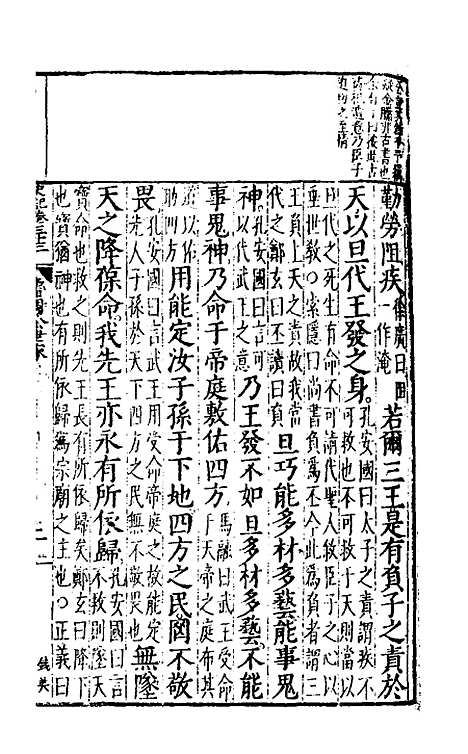 疑金縢非古書也
意乃臣子
迫切之至情
勤勞阻疾徐廣曰阻一作淹若爾三王是有負子之責於
天以旦代王發之身孔安國曰太子之責謂疾不可救也不可救于天則當以
旦代之死生有命不可請代聖人敘臣子之心以垂世教○索隱曰尚書負為丕今此為負者謂三
王負上天之責故我當代之鄭玄曰丕讀曰負旦巧能多材多藝能事鬼
神孔安國曰言可以代武王之意乃王發不如旦多材多藝不能
事鬼神乃命于帝庭敷佑四方馬融曰武王受命于天帝之庭布其
道以佑助四方用能定汝子孫于下地四方之民罔不敬
畏孔安國曰言武王用受命帝庭之故能定先人子孫於天下四方之民無不敬畏也無墜
天之降葆命我先王亦永有所依歸孔安國曰言不救則墜天
寶命也救之則先王長有所依歸矣鄭玄曰降下也寶猶神也有所依歸為宗廟之主也○正義曰
史記卷三十三